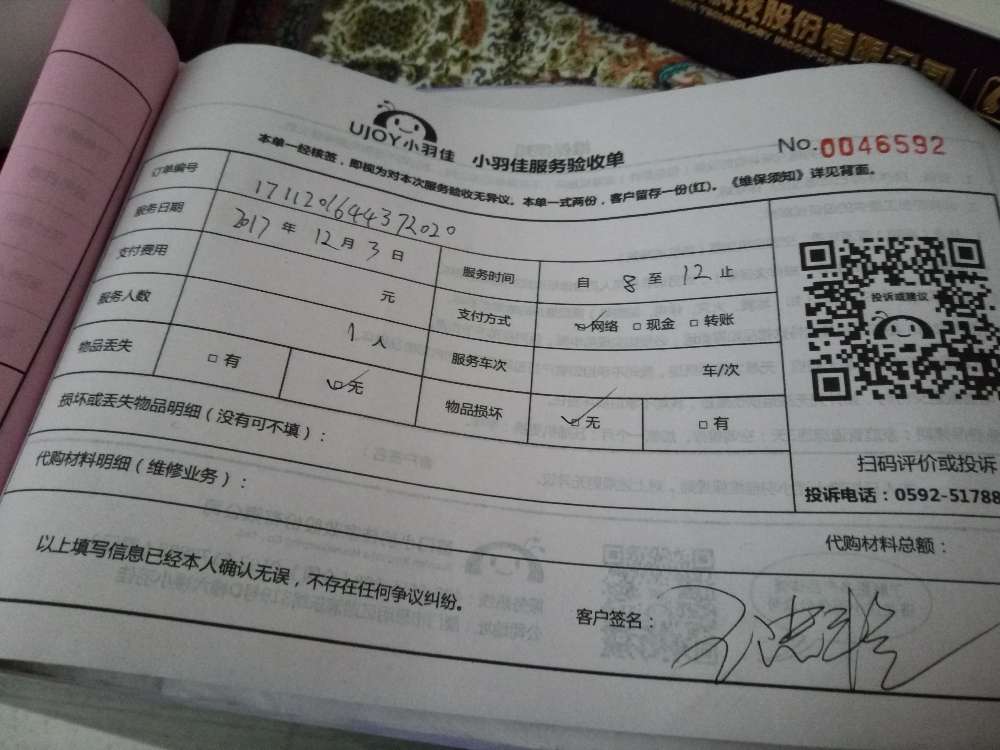 科技股份有限公司
UJOY小羽佳 小羽佳服务验收单
No.0046592
本单一经核签，即视为对本次服务验收无异议。本单一式两份，客户留存一份(红)。《维保须知》详见背面。
订单编号 171120164437 2020
服务日期 2017 年 12 月 3 日 服务时间 自 8 至 12 止
支付费用 元 支付方式 网络 现金 转账
服务人数 1 人 服务车次 车/次
物品丢失 有 无 物品损坏 无 有
投诉或建议
扫码评价或投诉
投诉电话：0592-51788
损坏或丢失物品明细（没有可不填）：
代购材料明细（维修业务）：
代购材料总额：
以上填写信息已经本人确认无误，不存在任何争议纠纷。
客户签名：